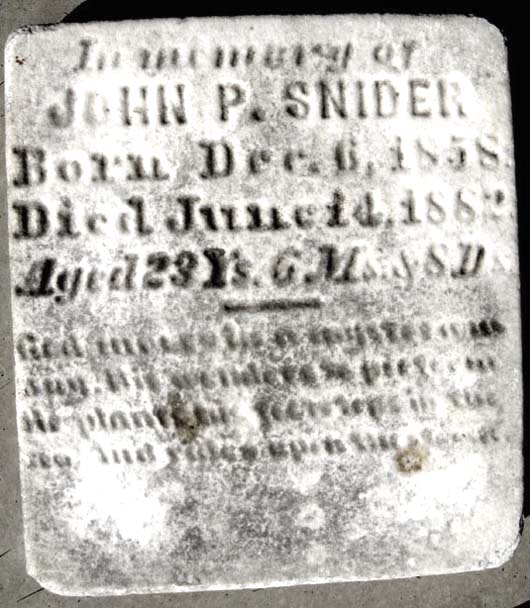 In memory of
JOHN P. SNIDER
Born Dec. 6, 1858.
Died June 14, 1882.
Aged 23 Ys. 6 Ms. & 8 Ds
God moves in a mysterious
way. His wonders to perform
He plants his footsteps in the
sea. And rides upon the storm